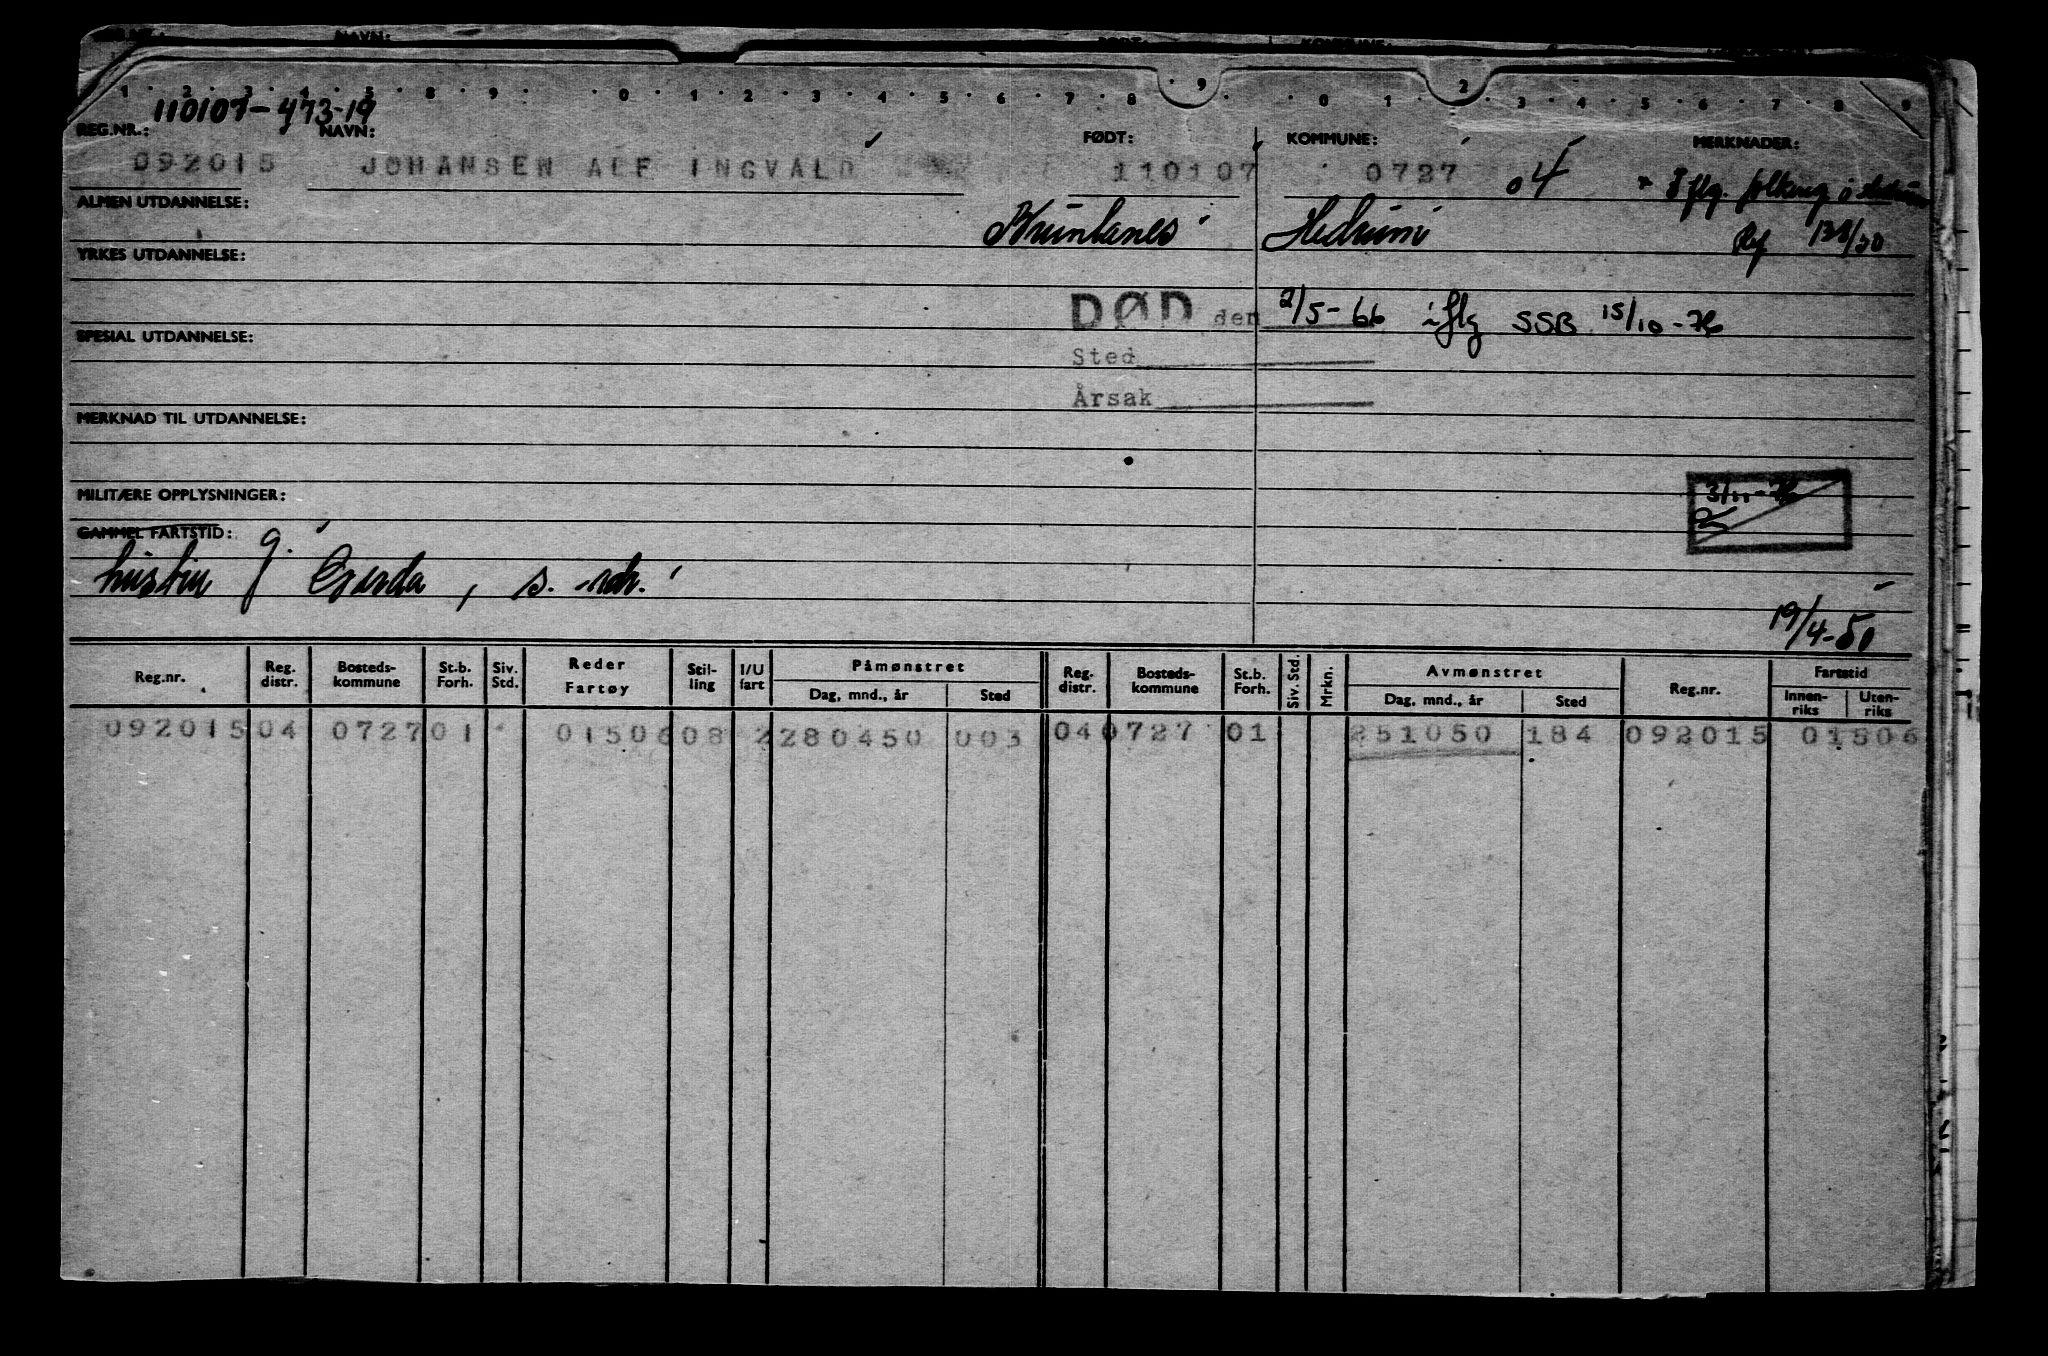 1 2 3 4 5 6 7 8 9 0 1 2 3 4 5 6 7 8 9 0 1 2 3 4 5 6 7 8 9
110107-473-19
REG.NR.: NAVN: FØDT: KOMMUNE: MERKNADER:
092015 JOHANSEN ALF INGVALD 110107 0727 04
ALMEN UTDANNELSE:
Hedrum
YRKES UTDANNELSE:
DØD den 2/5-66 iflg SSB 15/10-76
SPESIAL UTDANNELSE:
Sted
Årsak
MERKNAD TIL UTDANNELSE:
MILITÆRE OPPLYSNINGER: 3/11-76
GAMMEL FARTSTID:
hustru g. Gerda, s. adr.
19/4-50
Reg.nr. Reg. distr. Bosteds-kommune St.b. Forh. Siv. Std. Reder Fartøy Stil-ling I/U fart Påmønstret Dag, mnd., år Sted Reg. distr. Bosteds-kommune St.b. Forh. Siv. Std. Mrkn. Avmønstret Dag, mnd., år Sted Reg.nr. Fartstid Innen-riks Uten-riks
092015 04 0727 01 01506 08 2 280450 003 04 0727 01 251050 184 092015 01506